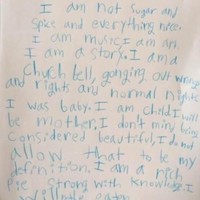 I am not sugar and
spice and everything nice.
I am music I am art
I am a story. I am a
church bell, gonging out wrongs
and rights and normal nights
I was baby. I am child I will
be mother. I don't mind being
considered beautiful, I do not
allow that to be my
definition. I am a rich
pie strong with knowledge. I
will not be eaten